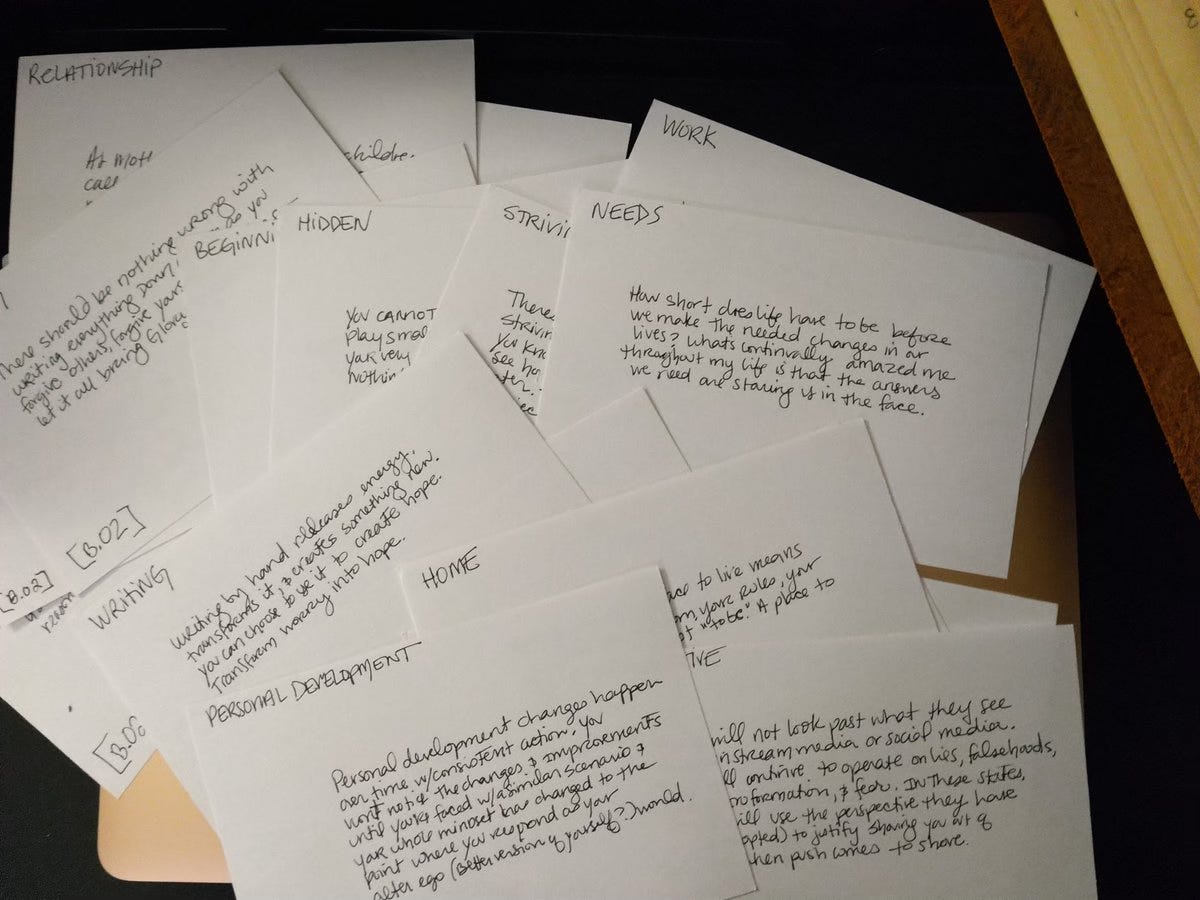 RELATIONSHIP
At Moth
call
childre.
WORK
There should be nothing wrong with
writing everything down,
as you
forgive others, forgive yours
let it all bring Glory
[B.02]
[B.02]
BEGINNI
HIDDEN
YOU CANNOT
play smal
your very
Nothin
STRIVIN
There
strivin
you kno
see ho
NEEDS
How short does life have to be before
we make the needed changes in our
lives? What's continually amazed me
throughout my life is that the answers
we need are staring us in the face.
WRITING
Writing by hand releases energy,
transforms it, & creates something new.
You can choose to use it to create hope.
Transform worry into hope.
HOME
ace to live means
om your roles, your
ot "to be." A place to
PERSONAL DEVELOPMENT
Personal development changes happen
over time. w/consistent action, you
won't notice the changes & improvements
until you're faced w/a similar scenario &
your whole mindset has changed to the
point where you respond as your
alter ego (Better version of yourself?) would.
TIVE
will not look past what they see
nstream media or social media.
ll continue to operate on lies, falsehoods,
formation, & fear. In these states,
ill use the perspective they have
opted) to justify shoving you out of
hen push comes to shove.